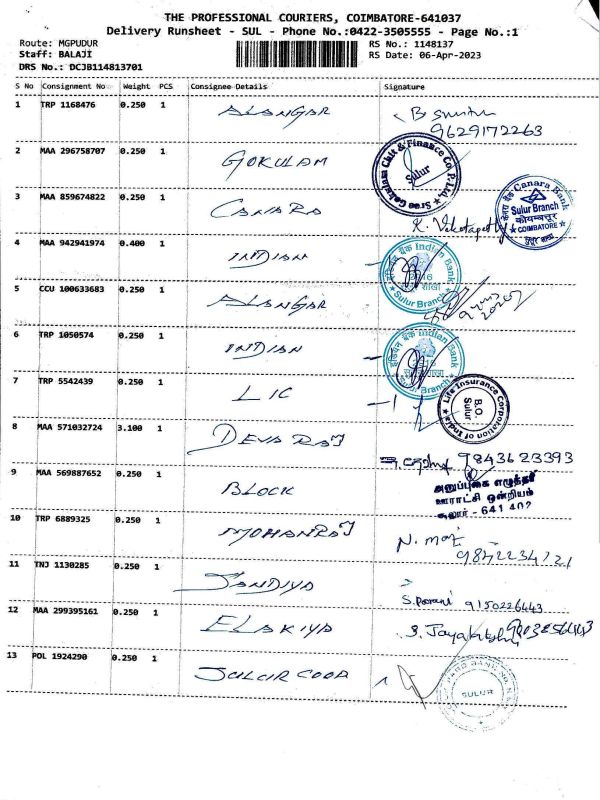 THE PROFESSIONAL COURIERS, COIMBATORE-641037
Delivery Runsheet - SUL - Phone No.:0422-3505555 - Page No.:1
Route: MGPUDUR
RS No.: 1148137
Staff: BALAJI
RS Date: 06-Apr-2023
DRS No.: DCJB114813701
S No Consignment No Weight PCS Consignee Details Signature
1 TRP 1168476 0.250 1 ALANGAR
9629172263
2 MAA 296758707 0.250 1 GOKULAM
Sree Gokulam Chit & Finance Co. P. Ltd.
Sulur
3 MAA 859674822 0.250 1 CANARA
Canara Bank
Sulur Branch
COIMBATORE
4 MAA 942941974 0.400 1 INDIAN
इंडियन बैंक Indian Bank
Sulur Branch
5 CCU 100633683 0.250 1 ALANGAR
6 TRP 1050574 0.250 1 INDIAN
इंडियन बैंक Indian Bank
Sulur Branch
7 TRP 5542439 0.250 1 LIC
Life Insurance Corporation of India
B.O.
Sulur
8 MAA 571032724 3.100 1 DEVARAJ
9843623393
9 MAA 569887652 0.250 1 BLOCK
ஊராட்சி ஒன்றியம்
சூலூர் - 641 402
10 TRP 6889325 0.250 1 MOHANRAJ
11 TNJ 1130285 0.250 1 SANDIYA
9150226443
12 MAA 299395161 0.250 1 ELAKIYA
13 POL 1924290 0.250 1 SULUR COOP
SULUR